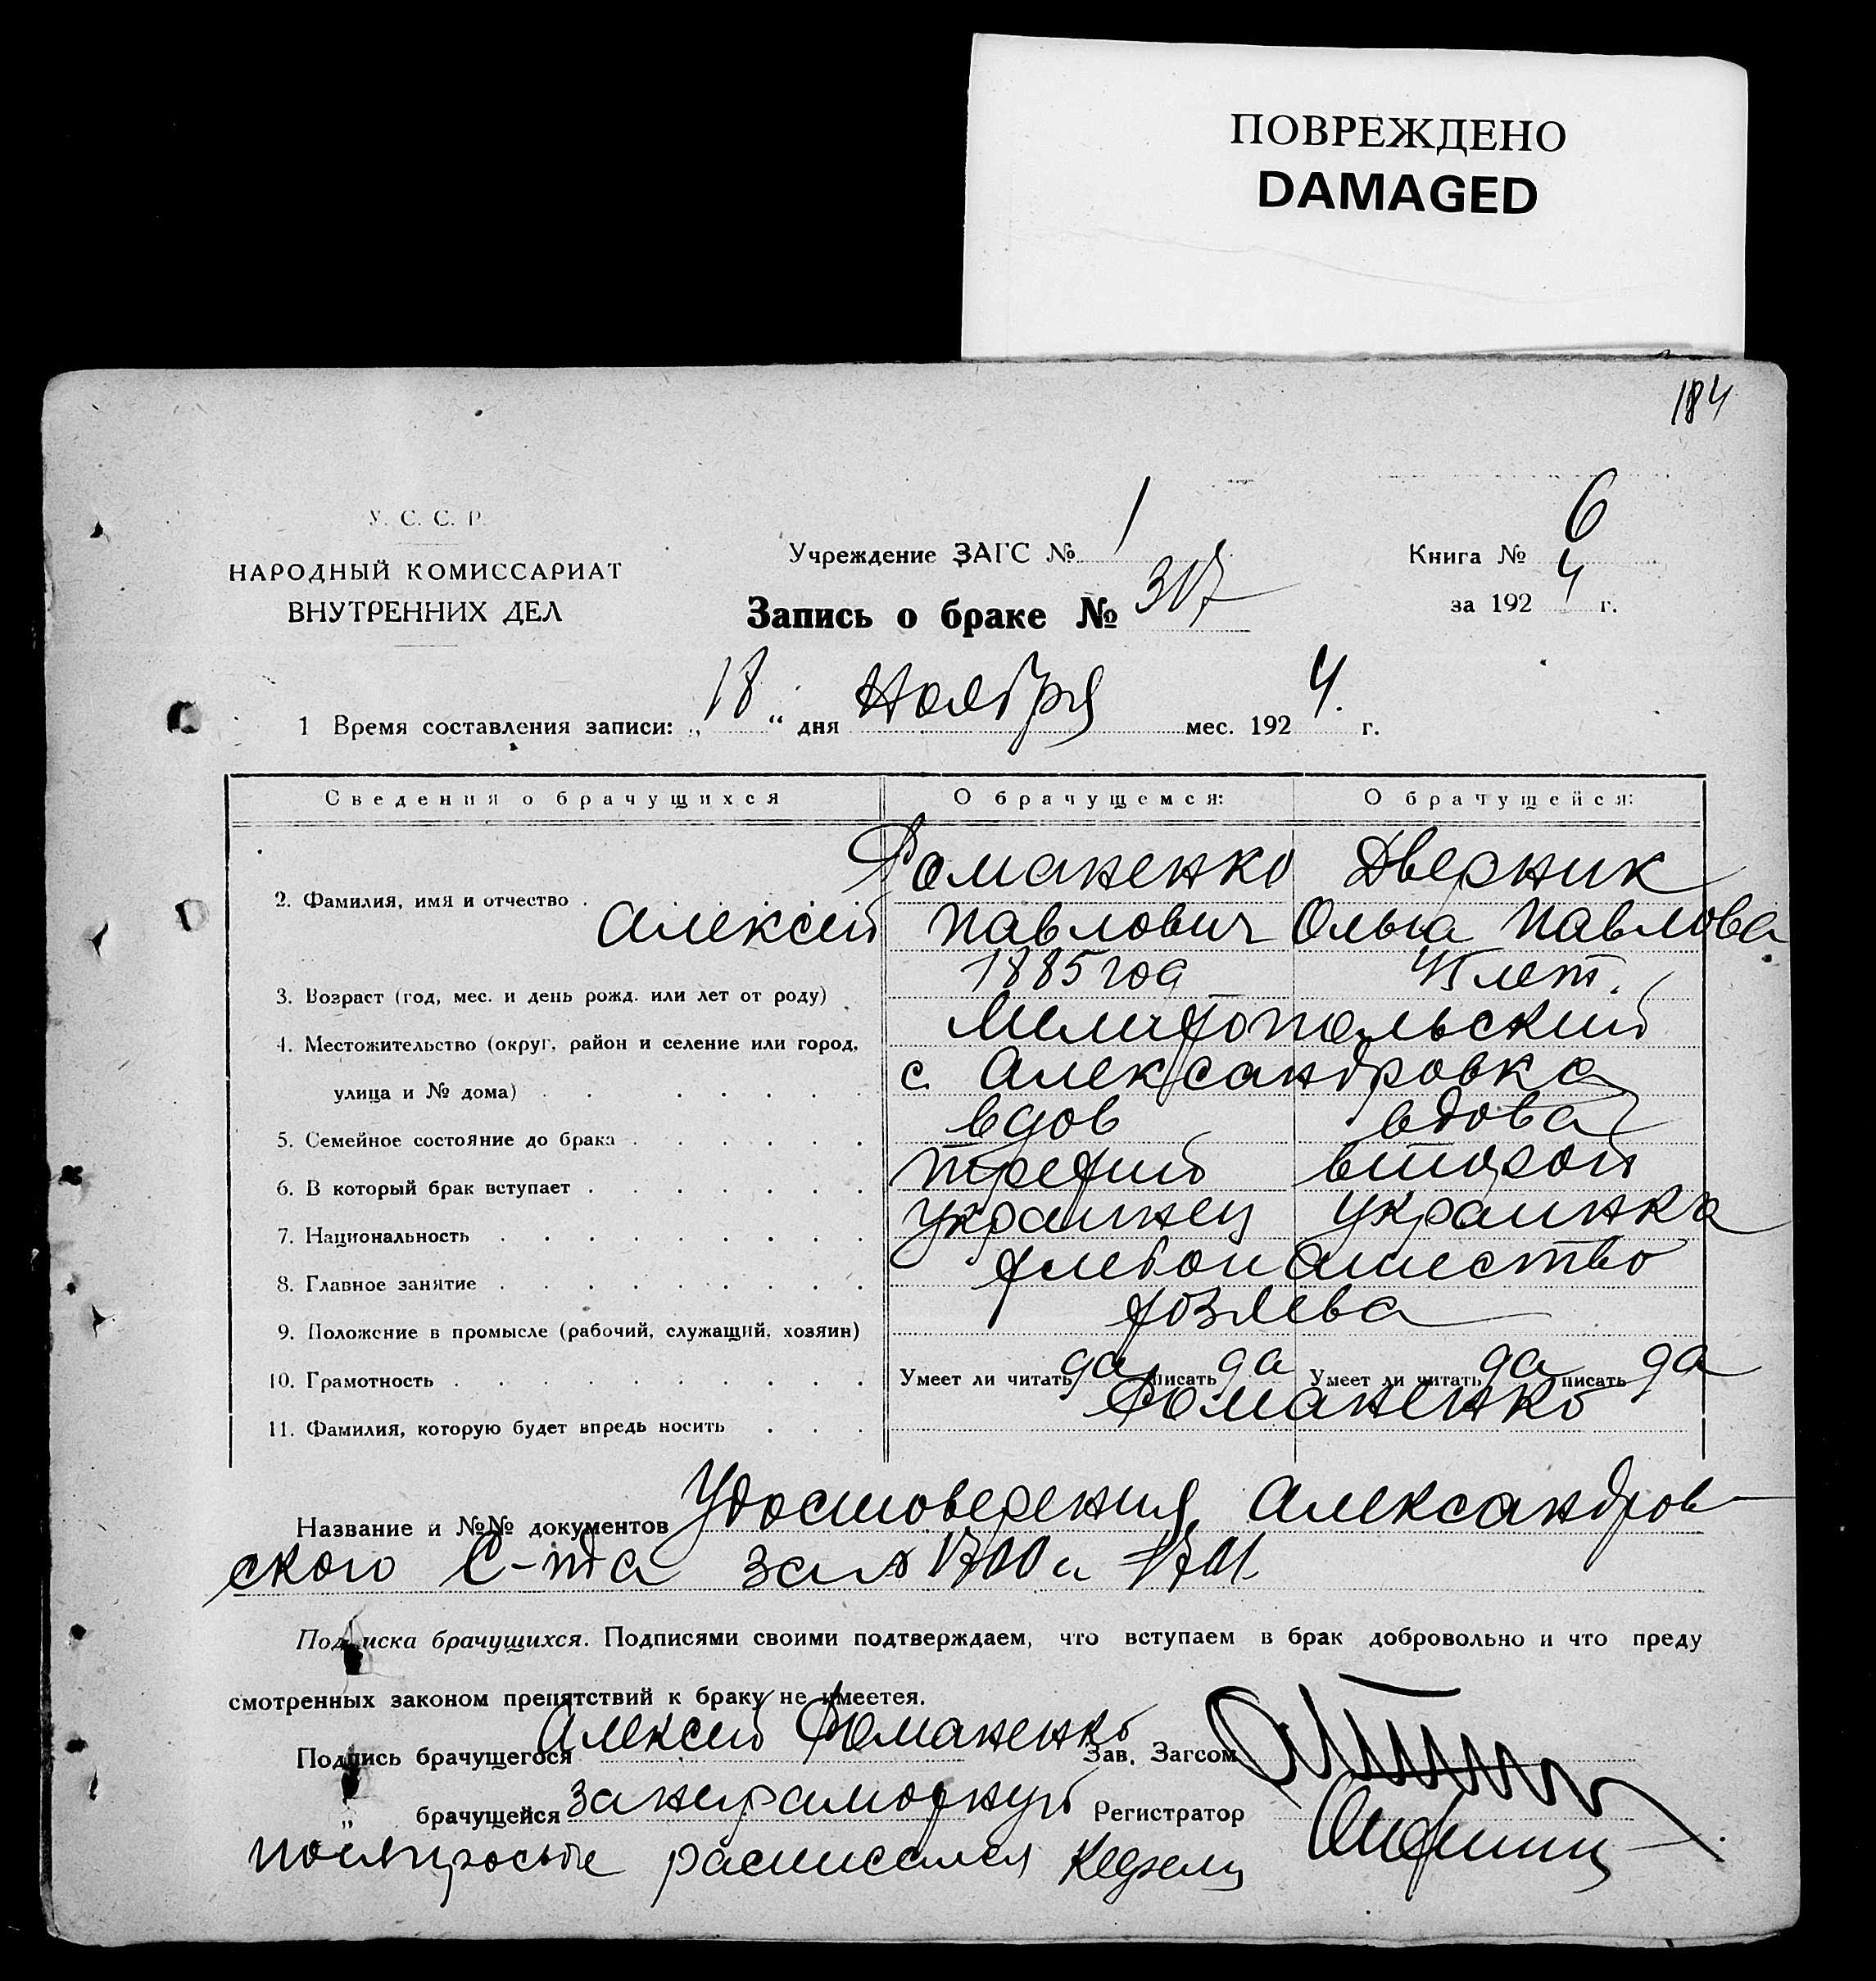 ПОВРЕЖДЕНО
DAMAGED
184
У. С. С. Р.
НАРОДНЫЙ КОМИССАРИАТ
ВНУТРЕННИХ ДЕЛ
Учреждение ЗАГС № 1
Запись о браке № 317
Книга № 6
за 1924 г.
1 Время составления записи: „18“ дня Ноября мес. 1924 г.
Сведения о брачущихся О брачущемся: О брачущейся:
2. Фамилия, имя и отчество . Романенко Дверник
Алексей Павлович Ольга Павлова
3. Возраст (год, мес. и день рожд. или лет от роду) 1885 год лет.
4. Местожительство (округ, район и селение или город, Мелитопольский
улица и № дома) с. Александровка
5. Семейное состояние до брака вдов вдова
6. В который брак вступает третий второй
7. Национальность украинец украинка
8. Главное занятие хлебопашество
9. Положение в промысле (рабочий, служащий, хозяин) хозяева
10. Грамотность Умеет ли читать да писать да Умеет ли читать да писать да
11. Фамилия, которую будет впредь носить Романенко
Название и №№ документов Удостоверения Александров
ского С-та за № 1700 и 1701.
Подписка брачущихся. Подписями своими подтверждаем, что вступаем в брак добровольно и что преду
смотренных законом препятствий к браку не имеетея.
Подпись брачущегося Алексей Романенко Зав. Загсом
„ брачущейся за неграмотную Регистратор
по ее просьбе расписался